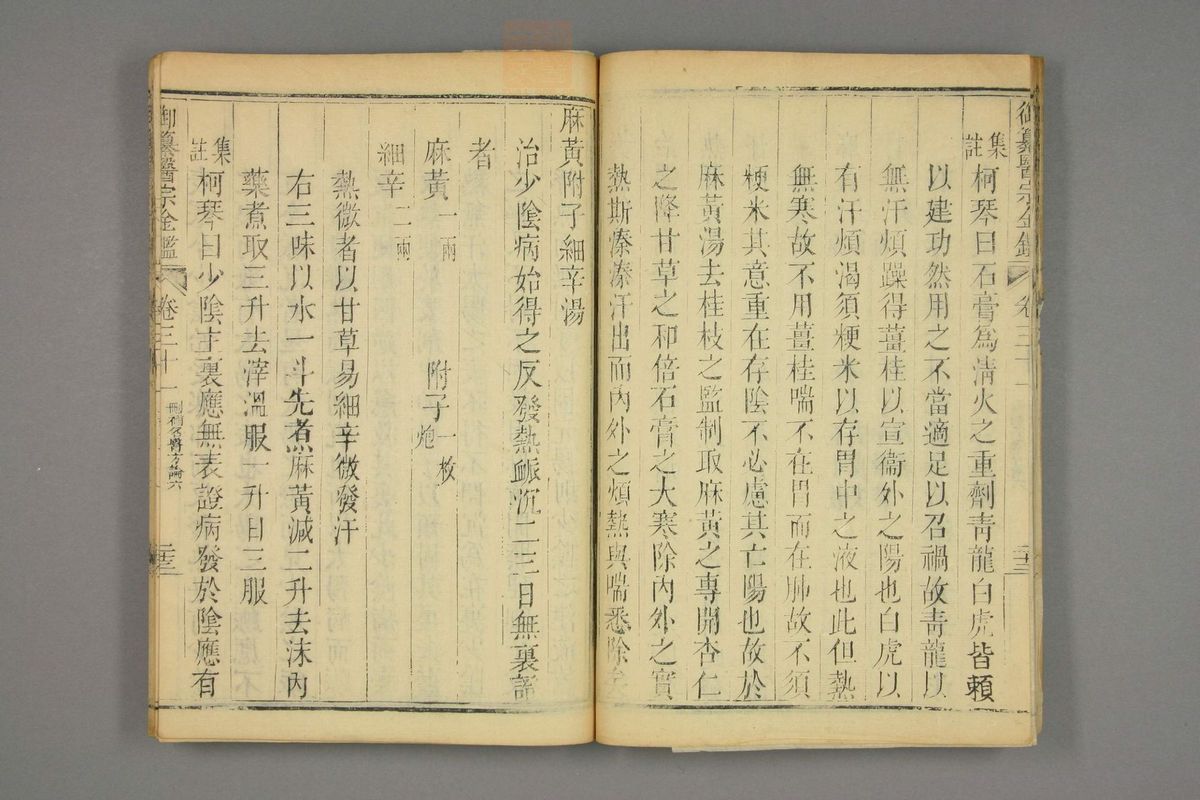 御纂醫宗金鑑 卷三十一 二十三
集註 柯琴曰石膏為清火之重劑青龍白虎皆賴
以建功然用之不當適足以召禍故青龍以
無汗煩躁得薑桂以宣衞外之陽也白虎以
有汗煩渴須粳米以存胃中之液也此但熱
無寒故不用薑桂喘不在胃而在肺故不須
粳米其意重在存陰不必慮其亡陽也故於
麻黃湯去桂枝之監制取麻黃之專開杏仁
之降甘草之和倍石膏之大寒除內外之實
熱斯溱溱汗出而內外之煩熱與喘悉除矣
麻黃附子細辛湯
治少陰病始得之反發熱脈沉二三日無裏證
者
麻黃一兩 附子一枚炮
細辛二兩
熱微者以甘草易細辛微發汗
右三味以水一斗先煮麻黃減二升去沫內
藥煮取三升去滓溫服一升日三服
集註 柯琴曰少陰主裏應無表證病發於陰應有
御纂醫宗金鑑 卷三十一 刪補名醫方論六 二十三